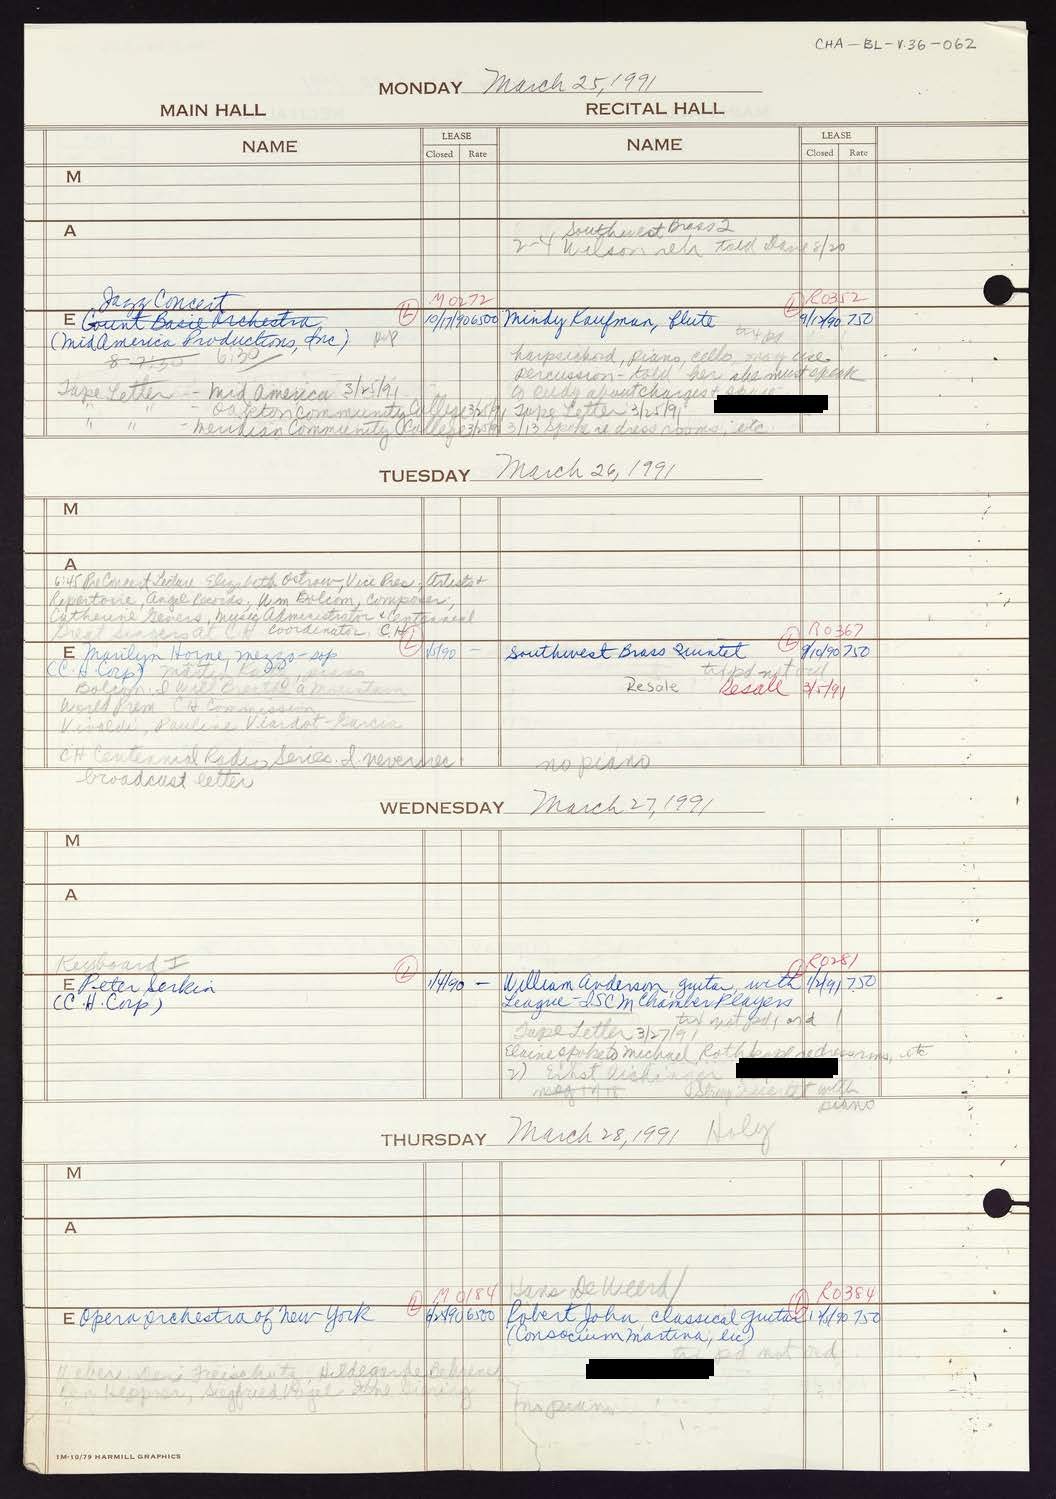 CHA-BL-V.36-062
MONDAY March 25, 1991
MAIN HALL RECITAL HALL
NAME LEASE Closed Rate NAME LEASE Closed Rate
M
A
Southwest Brass 2
2-4 Wilson reh told Dane 8/20
Jazz Concert M0272 R0352
E Count Basie Orchestra L 10/17/90 6500 Mindy Kaufman, flute L 9/12/90 750
(MidAmerica Productions, Inc)
8-7:30 6:30
harpsichord, piano, cello, may use
percussion - told her she must speak
Tape Letter - Mid America 3/25/91
to Rudy about charges +
" " - Oakton Community College 3/25/91 Tape Letter 3/25/91
" " - Meridian Community College 3/25/91 3/13 spoke re dress rooms, etc
TUESDAY March 26, 1991
M
A
6:45 PreConcert Lecture - Elizabeth Ostrow, Vice Pres - Artists +
Repertoire, Angel Records, Wm Bolcom, Composer,
Catherine Gevers, Music Administrator + Centennial
Great Singers at CH coordinator, CH L R0367
E Marilyn Horne, mezzo-sop 1/5/90 - Southwest Brass Quintet L 9/10/90 750
(C.H. Corp) Martin Katz, piano
Bolcom - I Will Breathe a Mountain Resale Resale 3/5/91
World Prem CH Commission
Vivaldi, Pauline Viardot-Garcia
CH Centennial Radio Series - I never rec no piano
broadcast letter
WEDNESDAY March 27, 1991
M
A
Keyboard I R0281
E Peter Serkin L 1/4/90 - William Anderson, guitar, with L 1/2/91 750
(C.H. Corp) League-ISCM Chamber Players
tix not pd, ord
Tape Letter 3/27/91
Elaine spoke to Michael Roth re dress rms, etc
2)
String Quartet with
piano
THURSDAY March 28, 1991 Holy
M
A
M0184 Hans DeWeerd/ R0384
E Opera Orchestra of New York L 6500 Robert John, classical guitar L 750
(Consocium Martina, Inc)
tix pd not ord
Weber: Der Freischutz, Hildegarde Behrens
Ben Heppner, Siegfried Vogel
no piano
1M-10/79 HARMILL GRAPHICS